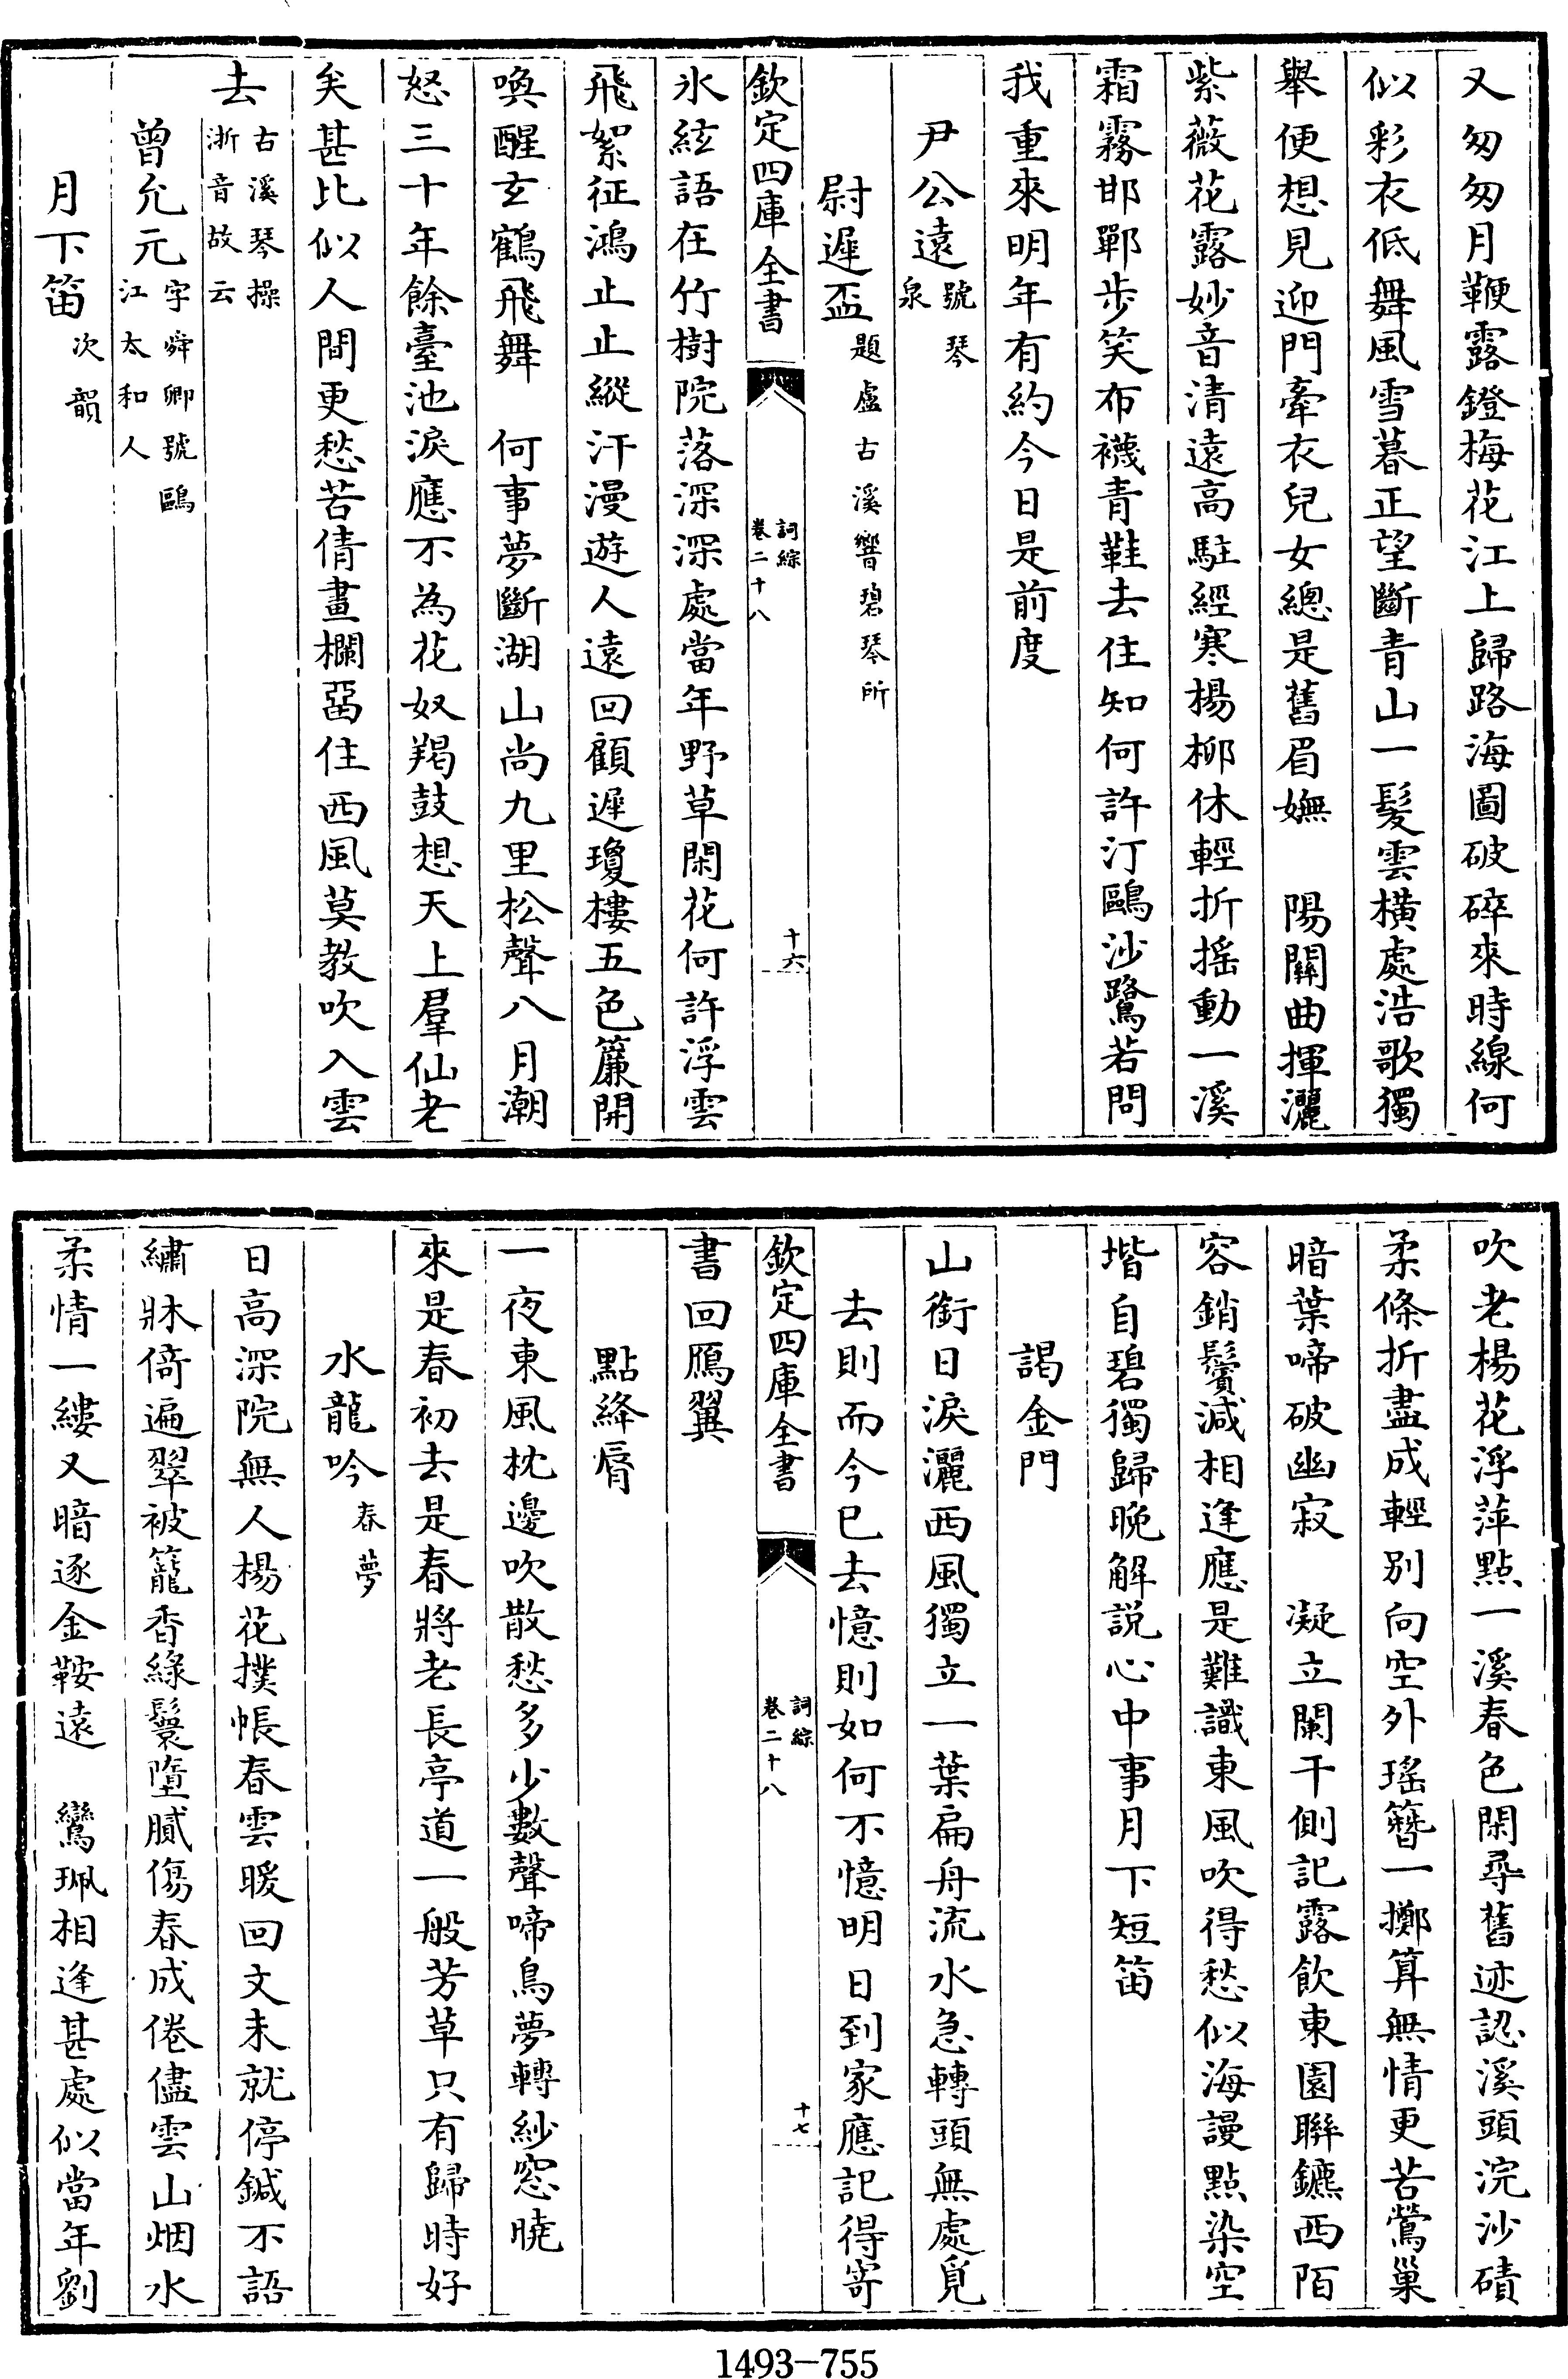 又匆匆月鞭露鐙梅花江上歸路海圖破碎來時線何
似彩衣低舞風雪暮正望斷青山一髮雲橫處浩歌獨
舉便想見迎門牽衣兒女總是舊眉嫵　陽關曲揮灑
紫薇花露妙音清遠高駐經寒楊柳休輕折搖動一溪
霜霧邯鄲步笑布襪青鞋去住知何許汀鷗沙鷺若問
我重來明年有約今日是前度
尹公遠號琴泉
尉遲盃題盧古溪響碧琴所
欽定四庫全書
詞綜
卷二十八
十六
氷絃語在竹樹院落深深處當年野草閑花何許浮雲
飛絮征鴻止止縱汗漫遊人遠回顧遲瓊樓五色簾開
喚醒玄鶴飛舞　何事夢斷湖山尚九里松聲八月潮
怒三十年餘臺池淚應不為花奴羯鼓想天上羣仙老
矣甚比似人間更愁苦倩畫欄畱住西風莫教吹入雲
去古溪琴操浙音故云
曾允元字舜卿號鷗江太和人
月下笛次韻
吹老楊花浮萍點一溪春色閑尋舊迹認溪頭浣沙磧
柔條折盡成輕別向空外瑤簪一擲算無情更苦鶯巢
暗葉啼破幽寂　凝立闌干側記露飲東園聯鑣西陌
容銷鬢減相逢應是難識東風吹得愁似海謾點染空
堦自碧獨歸晚解說心中事月下短笛
謁金門
山銜日淚灑西風獨立一葉扁舟流水急轉頭無處覓
去則而今已去憶則如何不憶明日到家應記得寄
欽定四庫全書
詞綜
卷二十八
十七
書回鴈翼
點絳脣
一夜東風枕邊吹散愁多少數聲啼鳥夢轉紗窓曉
來是春初去是春將老長亭道一般芳草只有歸時好
水龍吟春夢
日高深院無人楊花撲帳春雲暖回文未就停鍼不語
繡牀倚遍翠被籠香綠鬟墮膩傷春成倦儘雲山烟水
柔情一縷又暗逐金鞍遠　鸞珮相逢甚處似當年劉
1493—755